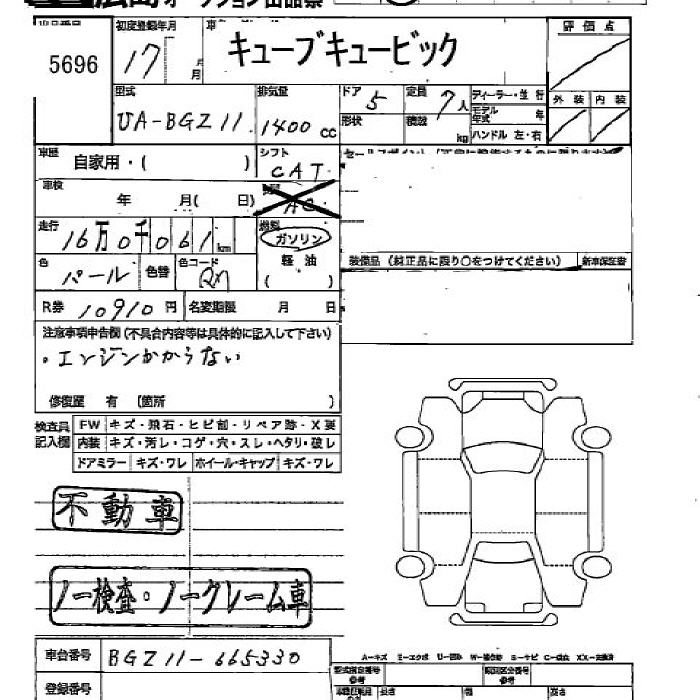 広島オークション出品票
出品番号 初度登録年月 車名 評価点
5696 17 年 月 キューブキュービック
型式 排気量 ドア 5 定員 7人 ディーラー・並行 外装 内装
UA-BGZ11 1400cc 形状 積載 kg モデル年式 年
ハンドル 左・右
車歴 自家用・( ) シフト CAT
車検 年 月( 日) AC
走行 16万0千061km 燃料 ガソリン
軽油
( )
色 パール 色替 色コード 装備品(純正品に限り○をつけてください) 新車保証書
R券 10910円 名変期限 月 日
注意事項申告欄(不具合内容等は具体的に記入して下さい)
・エンジンかからない
修復歴 有 (箇所 )
検査員記入欄 FW キズ・飛石・ヒビ割・リペア跡・X要
内装 キズ・汚レ・コゲ・穴・スレ・ヘタリ・破レ
ドアミラー キズ・ワレ ホイール・キャップ キズ・ワレ
不動車
ノー検査・ノークレーム車
車台番号 BGZ11-665330
登録番号